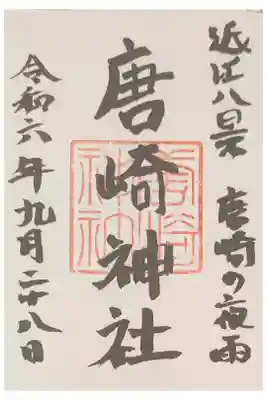 近江八景 唐崎の夜雨
唐崎神社
令和六年九月二十八日
唐崎神社